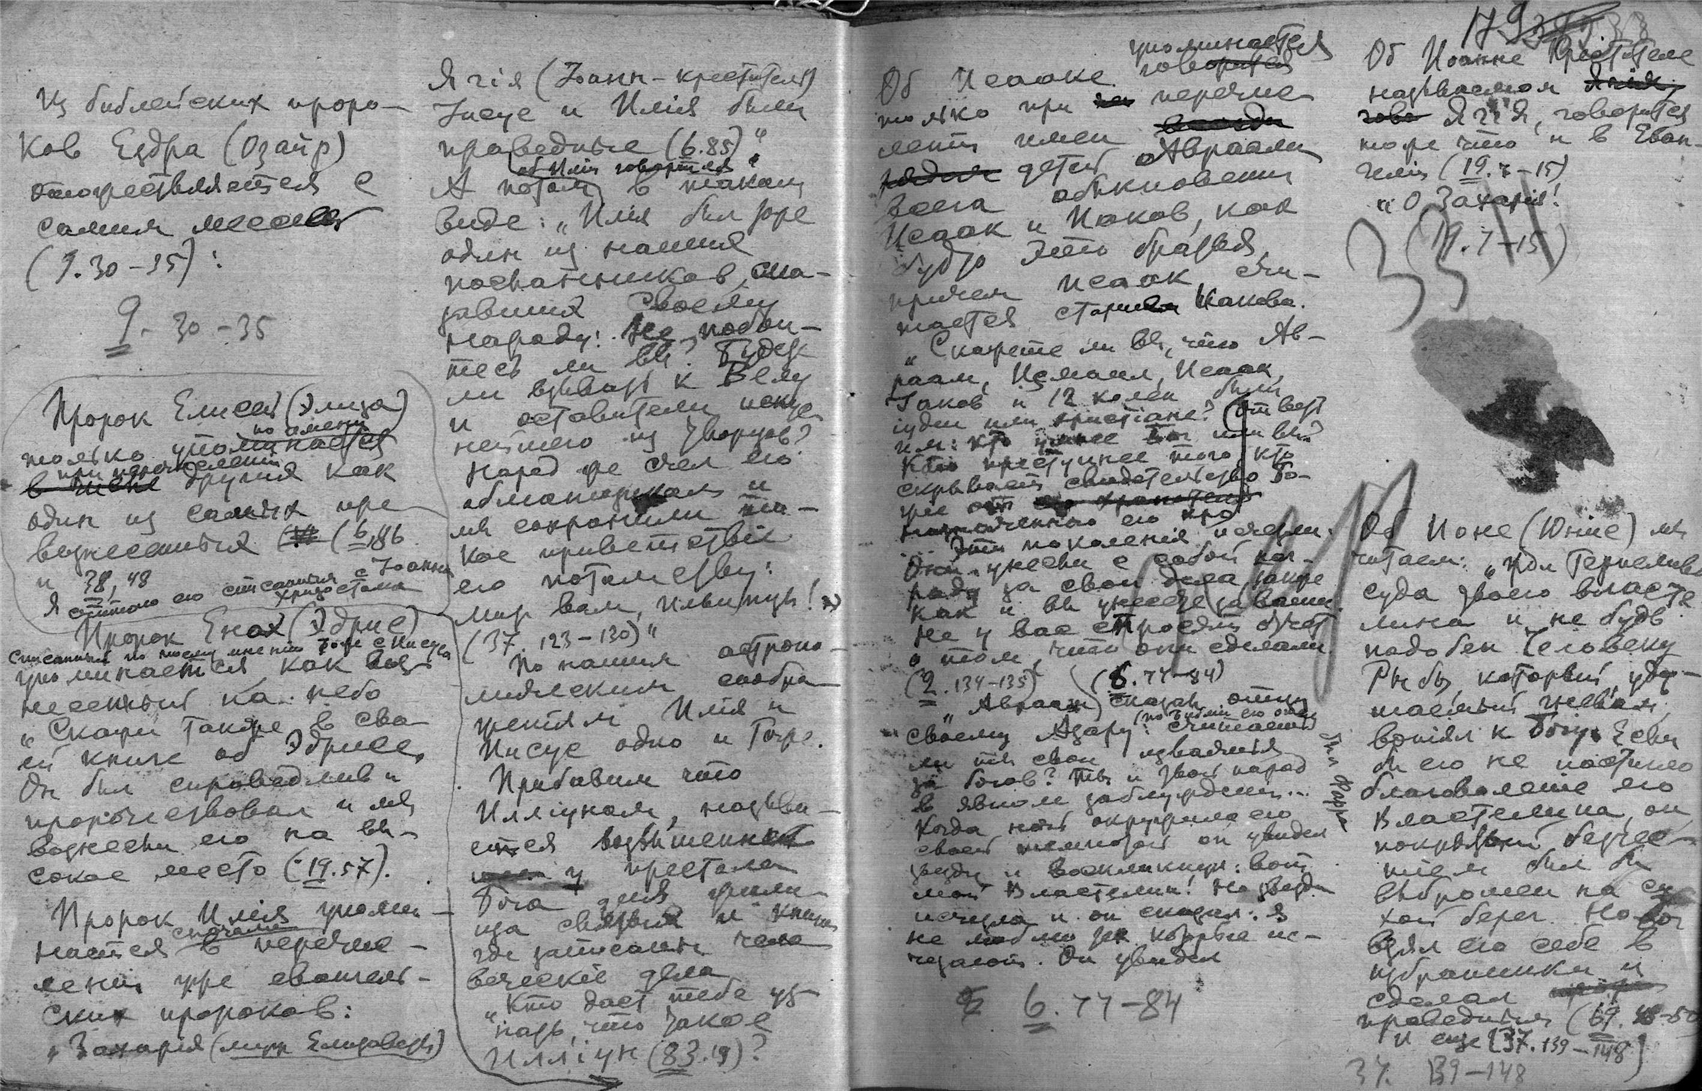 Из библейских проро-
ков Ездра (Озаир)
отожествляется с
самим мессией
(9.30-35):
9.-30-35
Пророк Елисей (Элиза)
только упоминается
по имени
при перечислении
других как
один из самых пре
вознесенных (6,86
и 38,48
Я считаю его списанным с Иоанна
Хризостома
Пророк Енох (Эдрис)
списанный по моему мнению тоже с Иисуса
упоминается как воз-
несенный на небо
"Скажи также в сво-
ей книге об Эдрисе,
Он был справедлив и
пророчествовал и мы
вознесли его на вы-
сокое место (19.57).
Пророк Илия упоми-
нается сначала в перечис-
лении уже евангель-
ских пророков:
"Захария (муж Елизаветы)
Ягiя (Iоанн-креститель)
Iисус и Илiя были
праведные (6.85)"
А потом (об Илiи говорится
в таком
виде: "Илiя был тоже
один из наших
посланников, ска-
завших своему
народу: Не побои-
тесь ли вы? Будете
ли взывать к Велу
и оставители
из творцов?
Народ же счел его
обманщиком и
мы сохранили та-
кое приветствiе
его потомству:
мир вам, Ильинцы!
(37. 123-130)"
По нашим астроно-
мическим сообра-
жениям Илiя и
Иисус одно и тоже.
Прибавим что
Иллiуном, называ-
ется возвышенное
у престола
Бога для храни-
ща и книги
где записаны чело
веческiе дела
"Кто даст тебе уз-
нать, что такое
Иллiун (83.19)?
Об Исааке упоминается
говорится
только при перечис
лении имен
детей Авраама
всего обыкновенно
Исаак и Иаков, как
будто это братья,
причем Исаак счи-
тается старше Иакова.
"Скажете ли вы, что Ав-
раам, Исмаил, Исаак,
Iаков и 12 колен были
iудеи или христiане? (Ответь
им: кто умнее Бог или вы?
Кто преступнее того кто
скрывает свидетельство Бо-
жее
Эти поколения исчезли.
Они унесли с собой наг-
раду за свои дела также
как и вы унесете за ваши.
Не у вас спросят отчет
о том, что они сделали.
(2. 134-135) (6.77-84)
"Авраам сказал отцу
своему Азару: (по Библии его отец Фарра)
считаешь
ли ты свои изваяния
за богов? Ты и твой народ
в явном заблуждении...
Когда ночь окружила его
своей темнотой он увидел
звезду и воскликнул: вот
мой Властелин! Но звезда
исчезла и он сказал: я
не люблю тех которые ис-
чезают. Он увидел
6.77-84
Об Иоанне Крестителе
называемом
Ягiя, говорится
тоже что и в Еван-
гелiи (19.7-15)
"О Захарiя!
(19.7-15)
33
Об Ионе (Юнiс) мы
читаем: "Жди терпеливо
суда твоего власте
лина и не будь
подобен человеку
Рыбы, который, удру-
чаемый гневом,
вопiял к Богу. Если
б его не постигло
благоволенiе его
Властелина, он
покрытый безчес-
тием был бы
выброшен на су
хой берег. Но Бог
взял его себе в
избранники и
сделал
праведным (69. 48-50
и еще [37.139-148]
37. 139-148